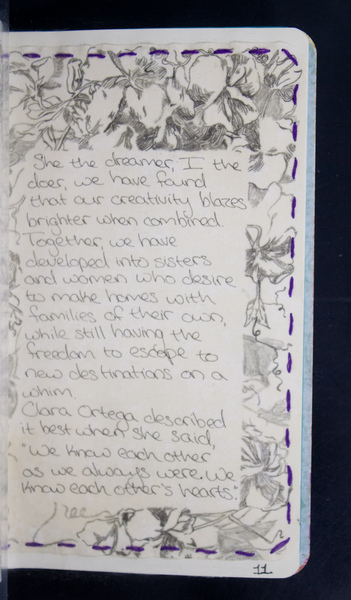 She the dreamer, I the
doer, we have found
that our creativity blazes
brighter when combined.
Together, we have
developed into sisters
and women who desire
to make homes with
families of their own,
while still having the
freedom to escape to
new destinations on a
whim.
Clara Ortega described
it best when she said,
"We know each other
as we always were. We
know each other's hearts."
11